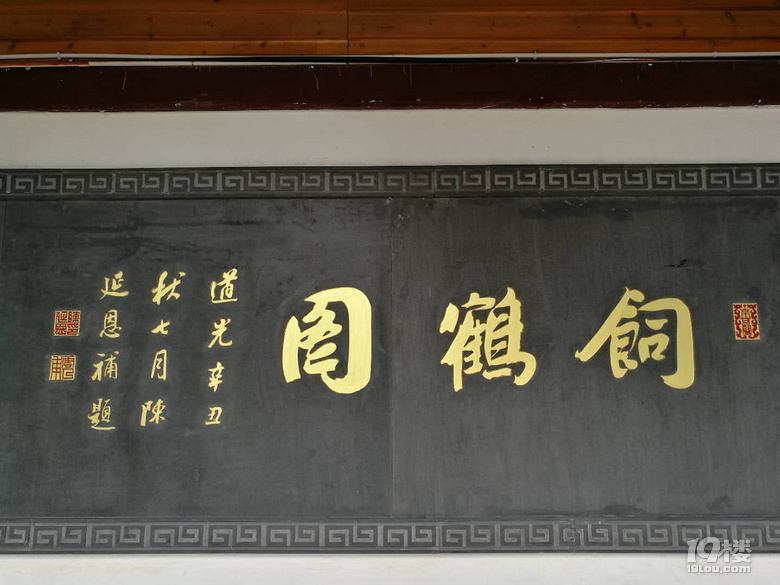 飼鶴圖
道光辛丑
秋七月陳
延恩補題
19楼
19lou.com